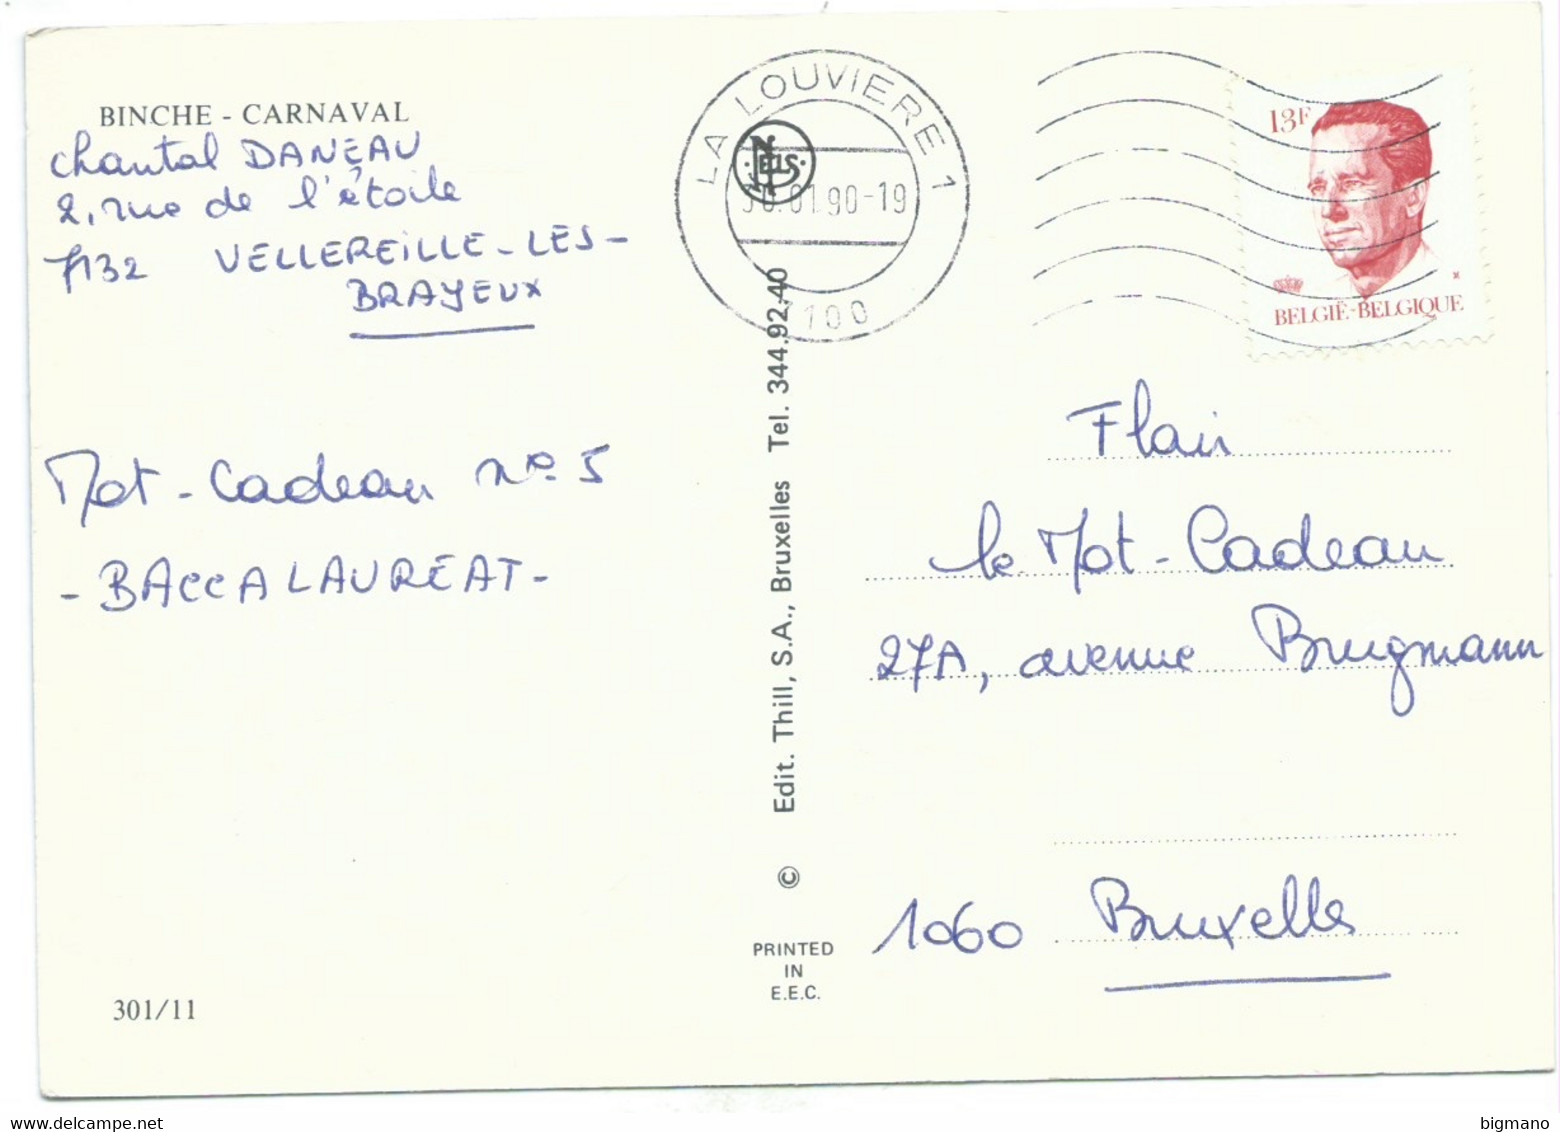 BINCHE - CARNAVAL
Chantal DANEAU
2, rue de l'étoile
7132 VELLEREILLE-LES-
BRAYEUX
Mot-Cadeau n° 5
- BACCALAURÉAT -
301/11
LA LOUVIERE 1
NELS
30.01.90-19
7100
Edit. Thill, S.A., Bruxelles Tel. 344.92.40
©
PRINTED
IN
E.E.C.
13F
BELGIË-BELGIQUE
Flair
le Mot-Cadeau
27A, avenue Brugmann
1060 Bruxelles
bigmano